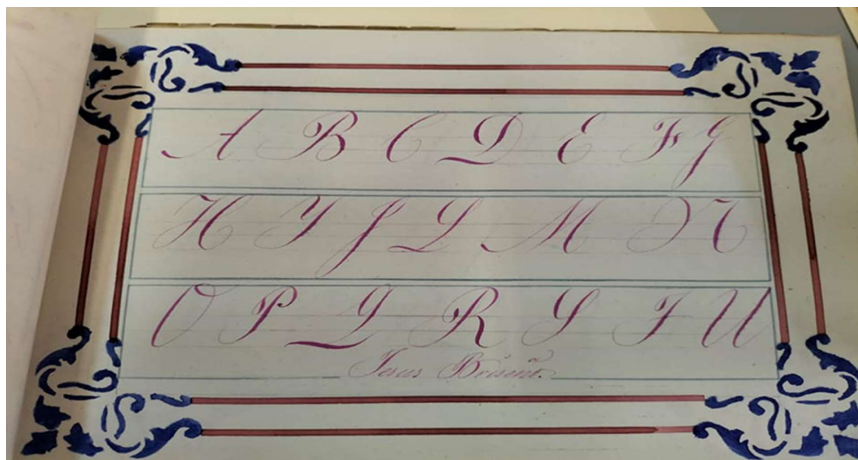 A B C D E F G
H Y J L M N
O P Q R S T U
Jesus Briseño.